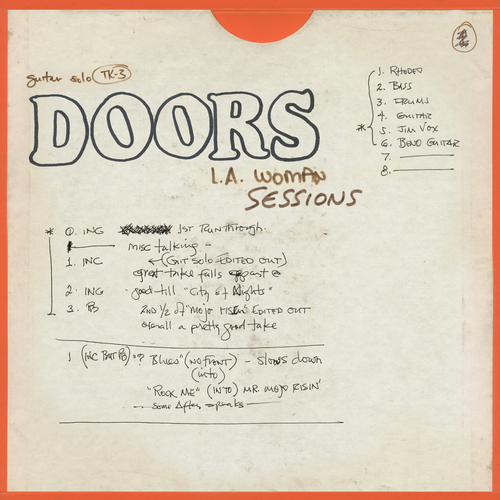 guitar solo TK-3
DOORS
L.A. WOMAN
SESSIONS
1. RHODES
2. BASS
3. DRUMS
4. GUITAR
* 5. JIM VOX
6. BEND GUITAR
7. ————
8. ————
* 0. INC 1ST RUNTHROUGH.
misc talking –
1. INC ← (GIT SOLO EDITED OUT)
great take falls apart @
2. INC good till "City of Nights"
3. PB 2ND 1/2 of "MOJO RISEN" EDITED OUT
overall a pretty good take
1 (INC BUT PB) "? Blues" (NO FRONT) – SLOWS down
(into)
"ROCK ME" (INTO) MR. MOJO RISIN'
— Some After speaks —